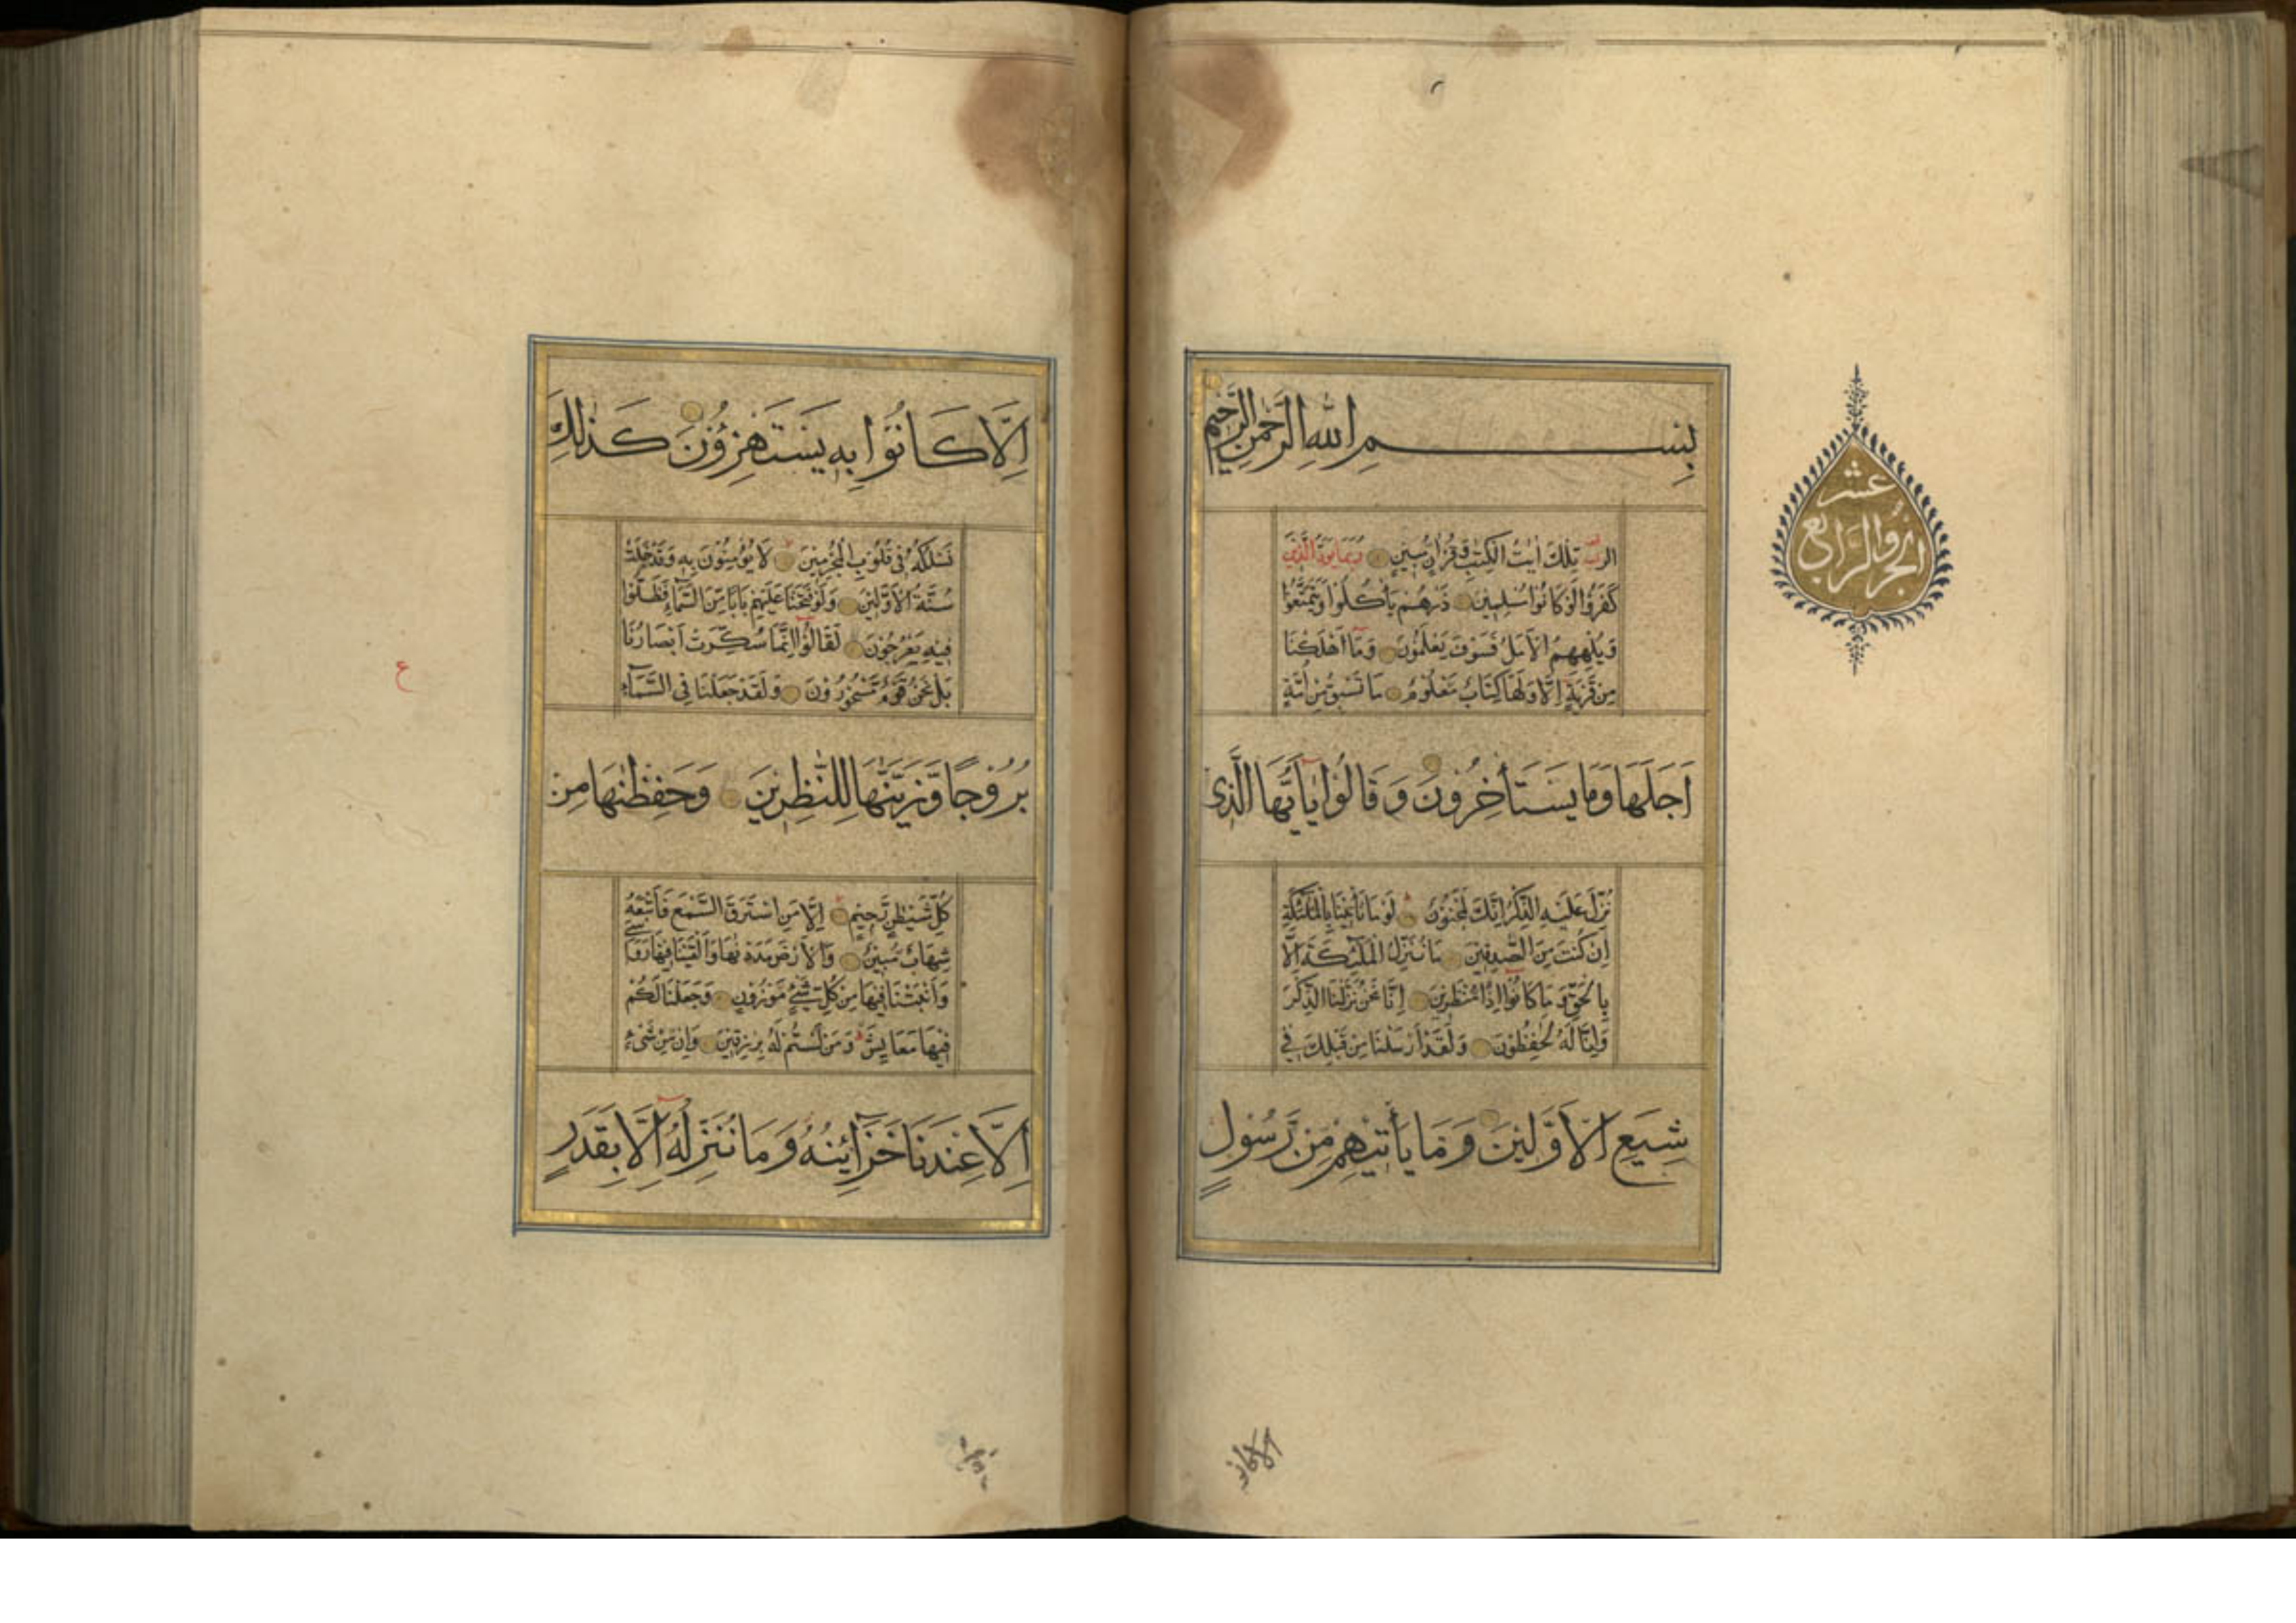 بِسْمِ اللهِ الرَّحْمٰنِ الرَّحِيْمِ
الرٰ تِلْكَ اٰيٰتُ الْكِتٰبِ وَقُرْاٰنٍ مُّبِيْنٍ رُبَمَا يَوَدُّ الَّذِيْنَ
كَفَرُوْا لَوْ كَانُوْا مُسْلِمِيْنَ ذَرْهُمْ يَأْكُلُوْا وَيَتَمَتَّعُوْا
وَيُلْهِهِمُ الْاَمَلُ فَسَوْفَ يَعْلَمُوْنَ وَمَا اَهْلَكْنَا
مِنْ قَرْيَةٍ اِلَّا وَلَهَا كِتَابٌ مَّعْلُوْمٌ مَا تَسْبِقُ مِنْ اُمَّةٍ
اَجَلَهَا وَمَا يَسْتَأْخِرُوْنَ وَقَالُوْا يٰاَيُّهَا الَّذِى
نُزِّلَ عَلَيْهِ الذِّكْرُ اِنَّكَ لَمَجْنُوْنٌ لَوْ مَا تَأْتِيْنَا بِالْمَلٰئِكَةِ
اِنْ كُنْتَ مِنَ الصّٰدِقِيْنَ مَا نُنَزِّلُ الْمَلٰئِكَةَ اِلَّا
بِالْحَقِّ وَمَا كَانُوْا اِذًا مُّنْظَرِيْنَ اِنَّا نَحْنُ نَزَّلْنَا الذِّكْرَ
وَاِنَّا لَهُ لَحٰفِظُوْنَ وَلَقَدْ اَرْسَلْنَا مِنْ قَبْلِكَ فِيْ
شِيَعِ الْاَوَّلِيْنَ وَمَا يَأْتِيْهِمْ مِّنْ رَّسُوْلٍ
الجزو الرابع
عشر
الا كانوا
اِلَّا كَانُوْا بِهِ يَسْتَهْزِؤُنَ كَذٰلِكَ
نَسْلُكُهُ فِيْ قُلُوْبِ الْمُجْرِمِيْنَ لَا يُؤْمِنُوْنَ بِهِ وَقَدْ خَلَتْ
سُنَّةُ الْاَوَّلِيْنَ وَلَوْ فَتَحْنَا عَلَيْهِمْ بَابًا مِّنَ السَّمَآءِ فَظَلُّوْا
فِيْهِ يَعْرُجُوْنَ لَقَالُوْا اِنَّمَا سُكِّرَتْ اَبْصَارُنَا
بَلْ نَحْنُ قَوْمٌ مَّسْحُوْرُوْنَ وَلَقَدْ جَعَلْنَا فِى السَّمَآءِ
بُرُوْجًا وَّزَيَّنّٰهَا لِلنّٰظِرِيْنَ وَحَفِظْنٰهَا مِنْ
كُلِّ شَيْطٰنٍ رَّجِيْمٍ اِلَّا مَنِ اسْتَرَقَ السَّمْعَ فَاَتْبَعَهُ
شِهَابٌ مُّبِيْنٌ وَالْاَرْضَ مَدَدْنٰهَا وَاَلْقَيْنَا فِيْهَا رَوَاسِىَ
وَاَنْبَتْنَا فِيْهَا مِنْ كُلِّ شَىْءٍ مَّوْزُوْنٍ وَجَعَلْنَا لَكُمْ
فِيْهَا مَعَايِشَ وَمَنْ لَّسْتُمْ لَهُ بِرٰزِقِيْنَ وَاِنْ مِّنْ شَىْءٍ
اِلَّا عِنْدَنَا خَزَآئِنُهُ وَمَا نُنَزِّلُهُ اِلَّا بِقَدَرٍ
ع